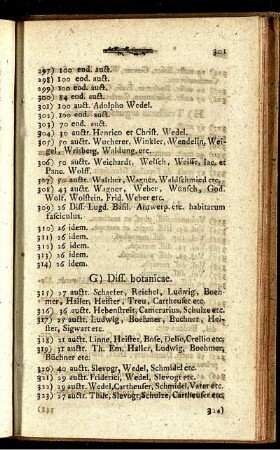 301
297) 100 eod. auct.
298) 100 eod. auct.
299) 100 eod. auct.
300) 84 eod. auct.
301) 100 auct. Adolpho Wedel.
302) 100 eod. auct.
303) 70 eod. auct.
304) 30 auctt. Henrico et Christ. Wedel.
305) 50 auctt. Wucherer, Winkler, Wendelin, Wei-
gel, Weisberg, Waldung, etc.
306) 50 auctt. Weichardt, Welsch, Weisse, Iac. et
Panc. Wolff.
307) 50 auctt. Walther, Wagner, Waldschmied etc.
308) 43 auctt. Wagner, Weber, Wünsch, God.
Wolf, Wolstein, Frid. Weber etc.
309) 26 Diss. Lugd. Basil. Antwerp. etc. habitarum
fasciculus.
310) 26 idem.
311) 26 idem.
312) 26 idem.
313) 26 idem.
314) 26 idem.
G) Diss. botanicae.
315) 27 auctt. Schaefer, Reichel, Ludwig, Boeh-
mer, Haller, Heister, Treu, Cartheuser etc.
316) 36 auctt. Hebenstreit, Camerarius, Schulze etc.
317) 27 auctt. Ludwig, Boehmer, Buchner, Hei-
ster, Sigwart etc.
318) 21 auctt. Linne, Heister, Bose, Delio, Crellio etc.
319) 31 auctt. Th. Em. Haller, Ludwig, Boehmer,
Büchner etc.
320) 40 auctt. Slevogt, Wedel, Schmidel etc.
321) 29 auctt. Friderici, Wedel, Slevogt etc.
322) 29 auctt. Wedel, Cartheuser, Schmidel, Vater etc.
323) 27 auctt. Thile, Slevogt, Schulze, Cartheuser etc.
324)